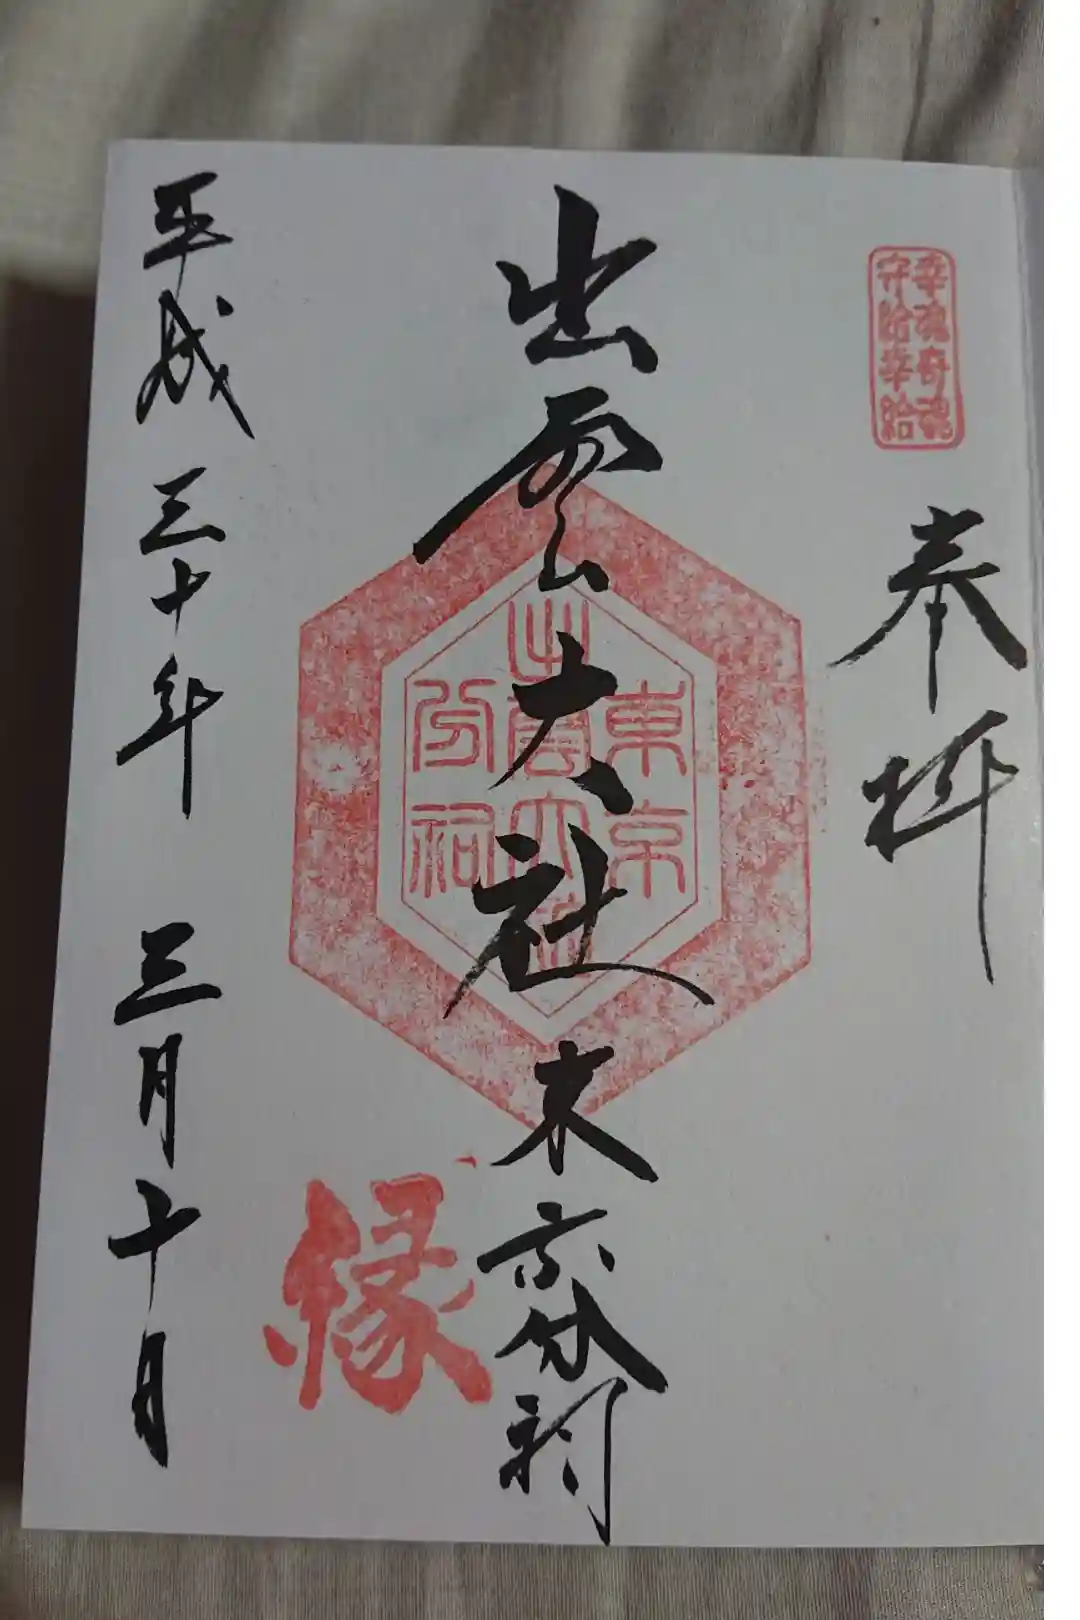 幸魂奇魂
守給幸給
奉拝
出雲大社東京分祠
東京
出雲大社
分祠
縁
平成三十年三月十日